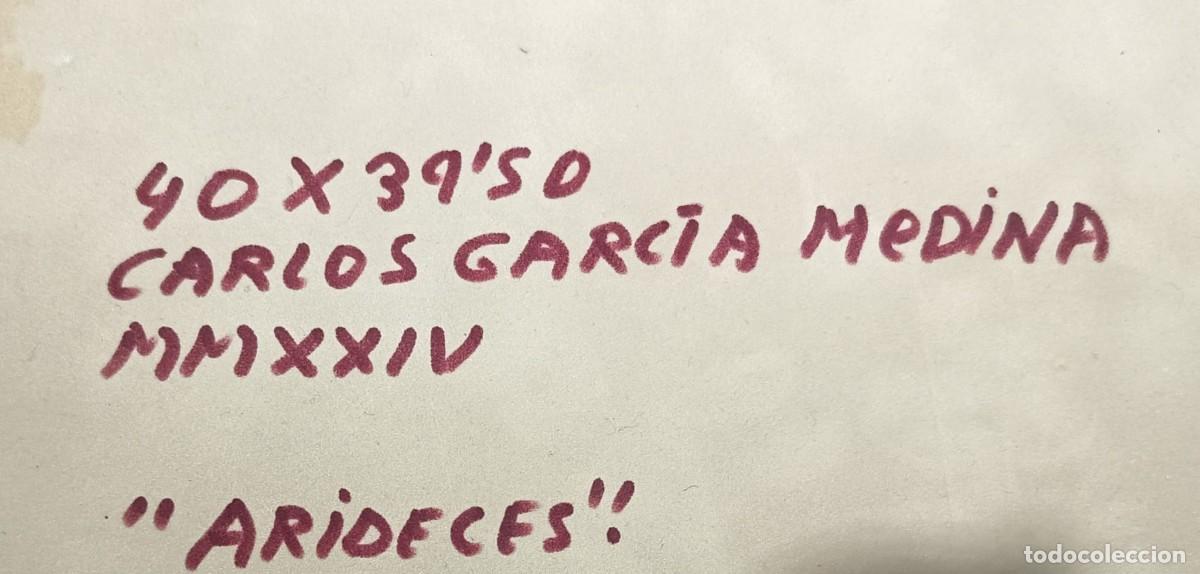 40 X 39'50
CARLOS GARCÍA MeDiNA
MMXXIV
"ARiDECES".
todocoleccion